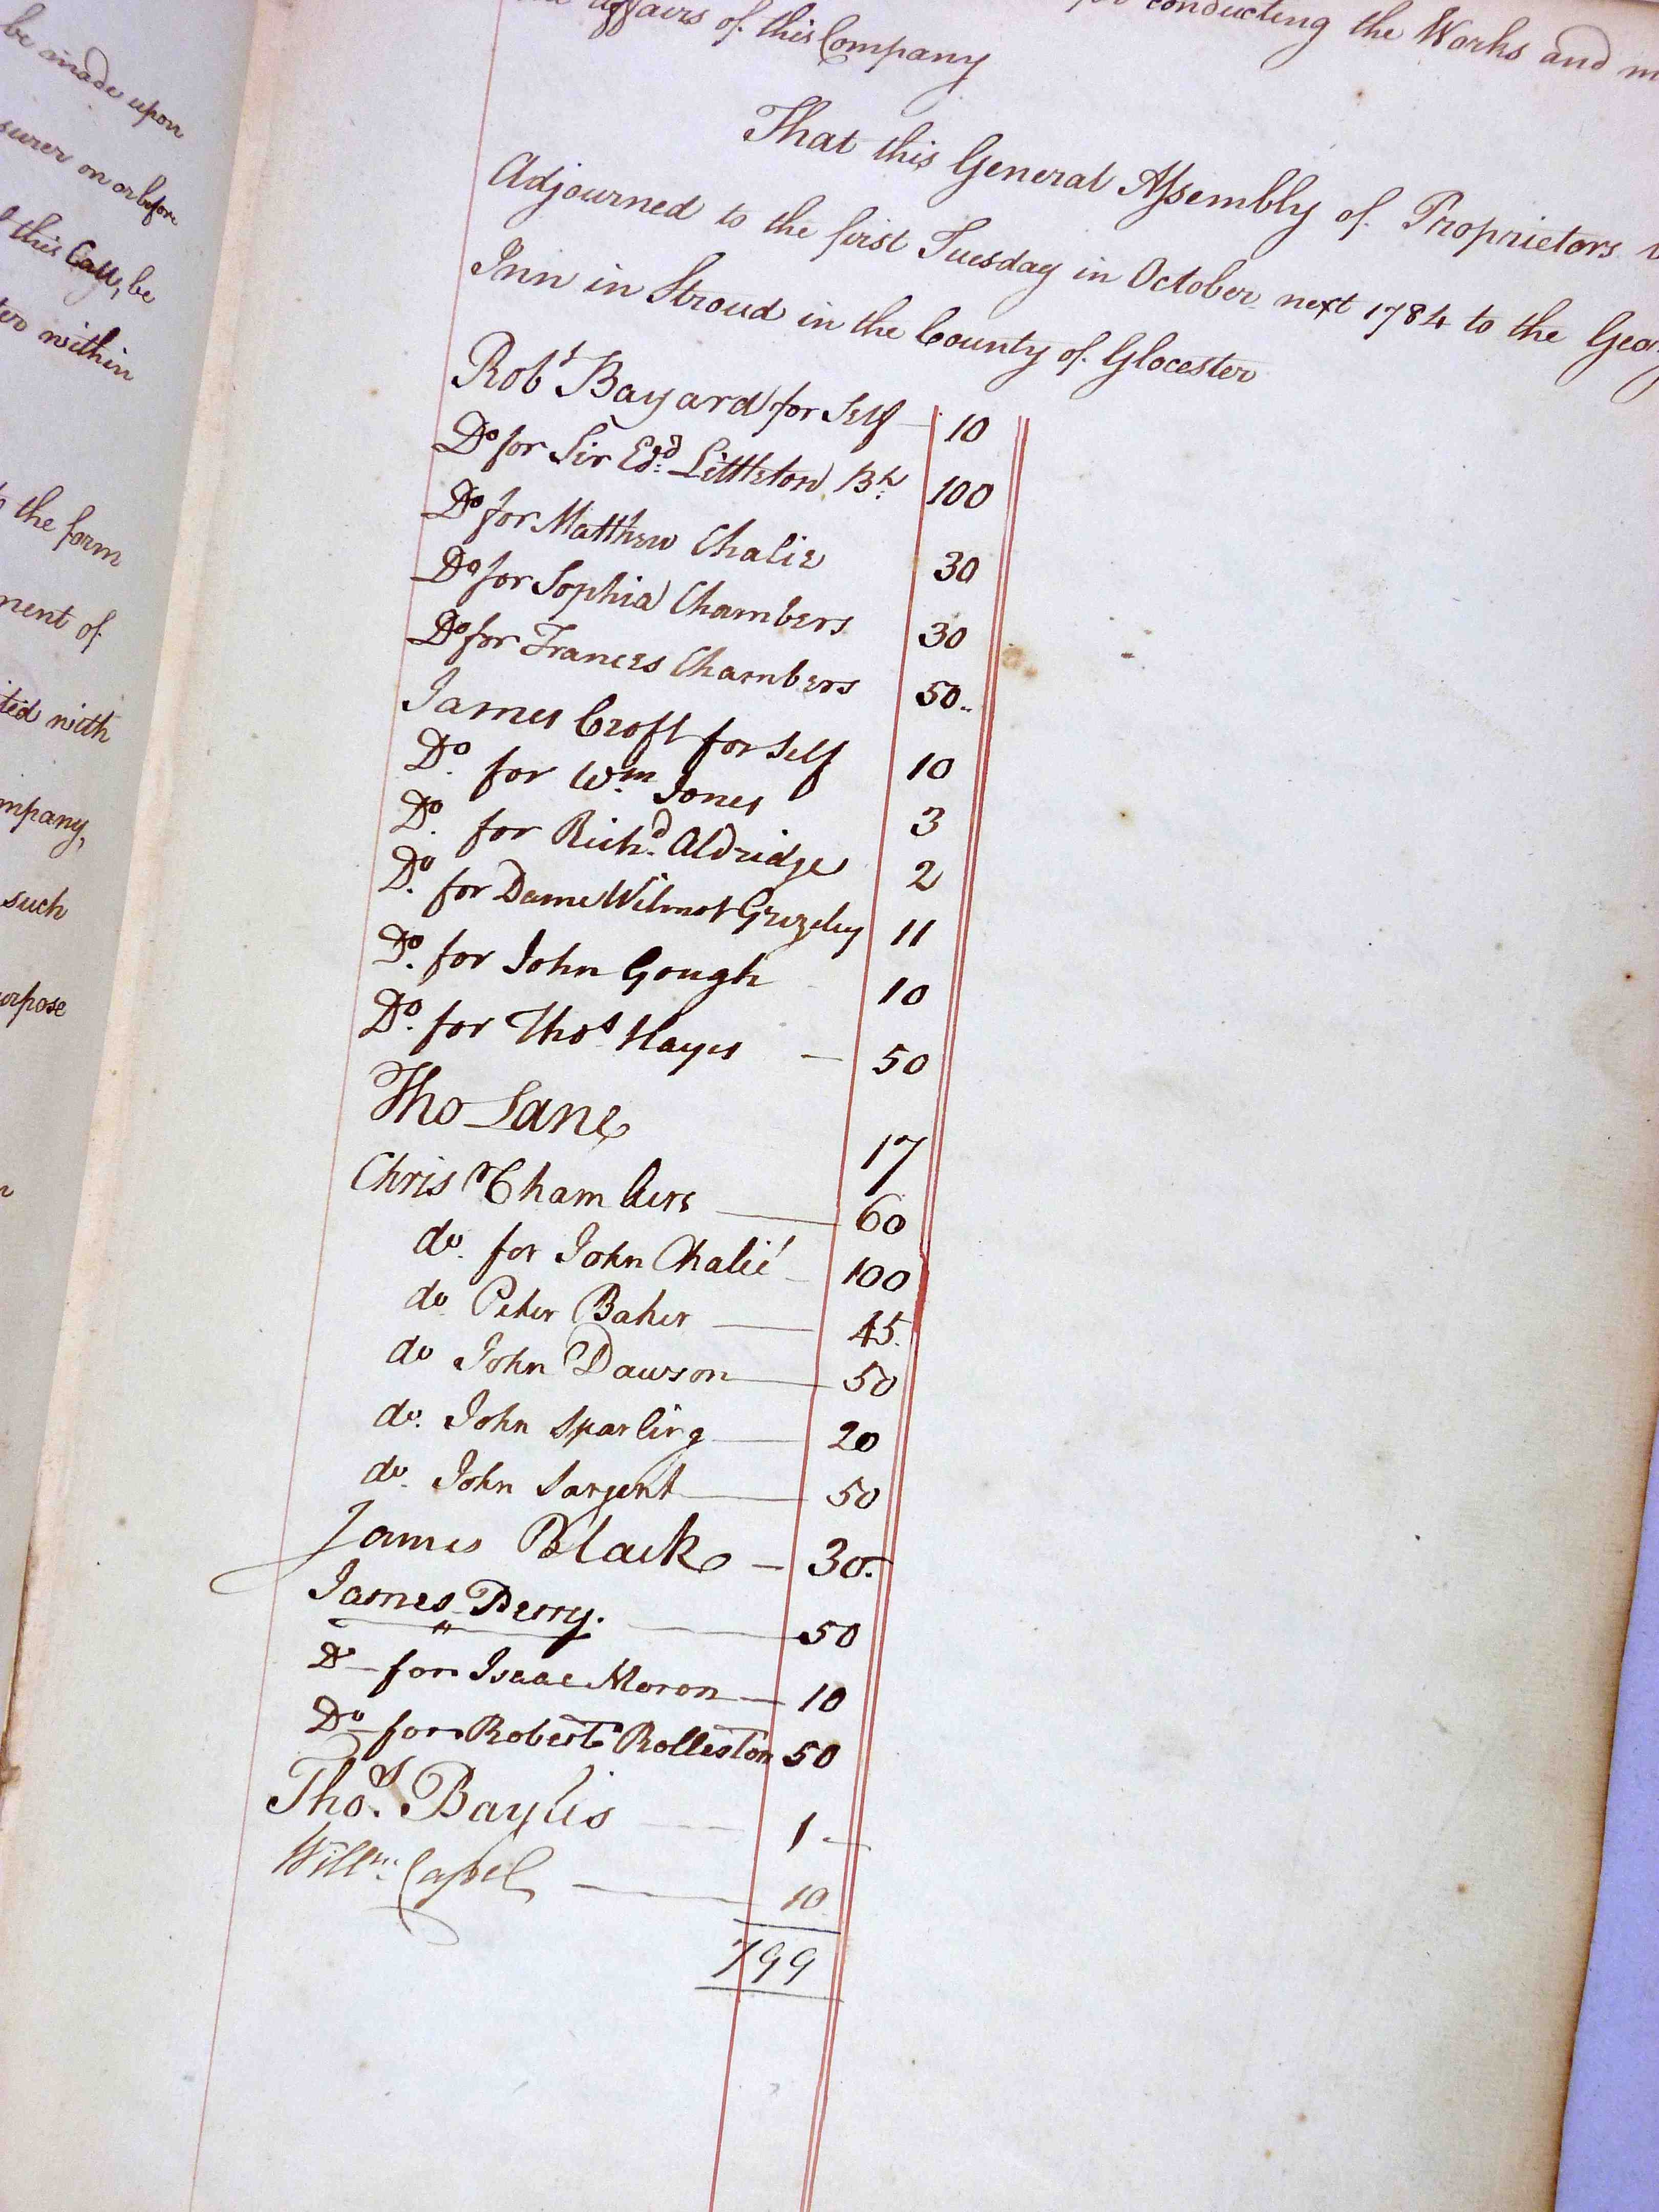 be made upon
surer on or before
this Call, be
ter within
the form
ment of
ted with
mpany,
such
urpose
for conducting the Works and m
affairs of this Company
That this General Assembly of Proprietors
Adjourned to the first Tuesday in October next 1784 to the Geor
Inn in Stroud in the County of Glocester
Robt Bayard for Self 10
Do for Sir Edd Littleton Bt 100
Do for Matthew Chalie 30
Do for Sophia Chambers 30
Do for Frances Chambers 50
James Croft for Self 10
Do. for Wm Jones 3
Do. for Richd Aldridge 2
Do. for Dame Wilmot Grezeley 11
Do. for John Gough 10
Do. for Thos Hayes — 50
Tho Lane 17
Chrisr Chambers — 60
do. for John Chalié — 100
do Peter Baker — 45.
do John Dawson — 50
do. John Sparling — 20
do. John Sargent — 50
James Black — 30.
James Perry. — 50
Do — for Isaac Moron — 10
Do — for Robert Rolleston 50
Thos. Baylis — 1 —
Willm. Capel — 10
799